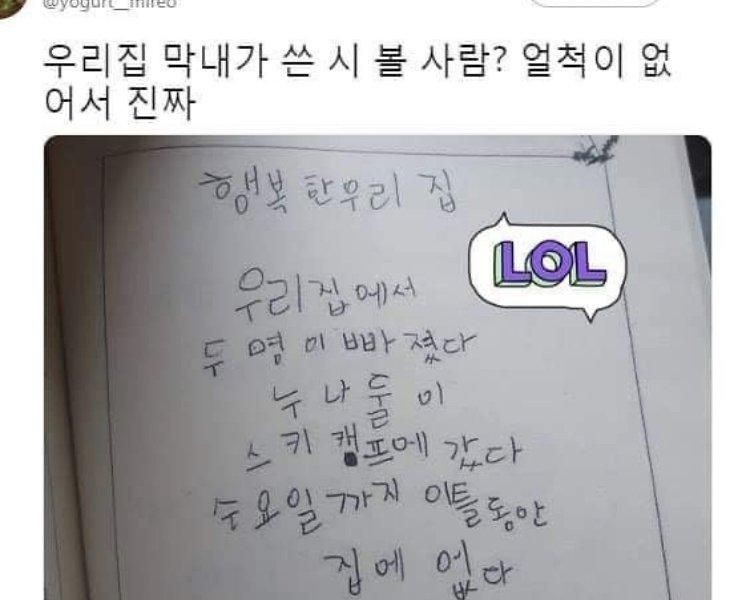 @yogurt__mireo
우리집 막내가 쓴 시 볼 사람? 얼척이 없
어서 진짜
행복한우리 집
LOL
우리집에서
두 명이 빠졌다
누나둘이
스키 캠프에 갔다
수요일까지 이틀동안
집에 없다